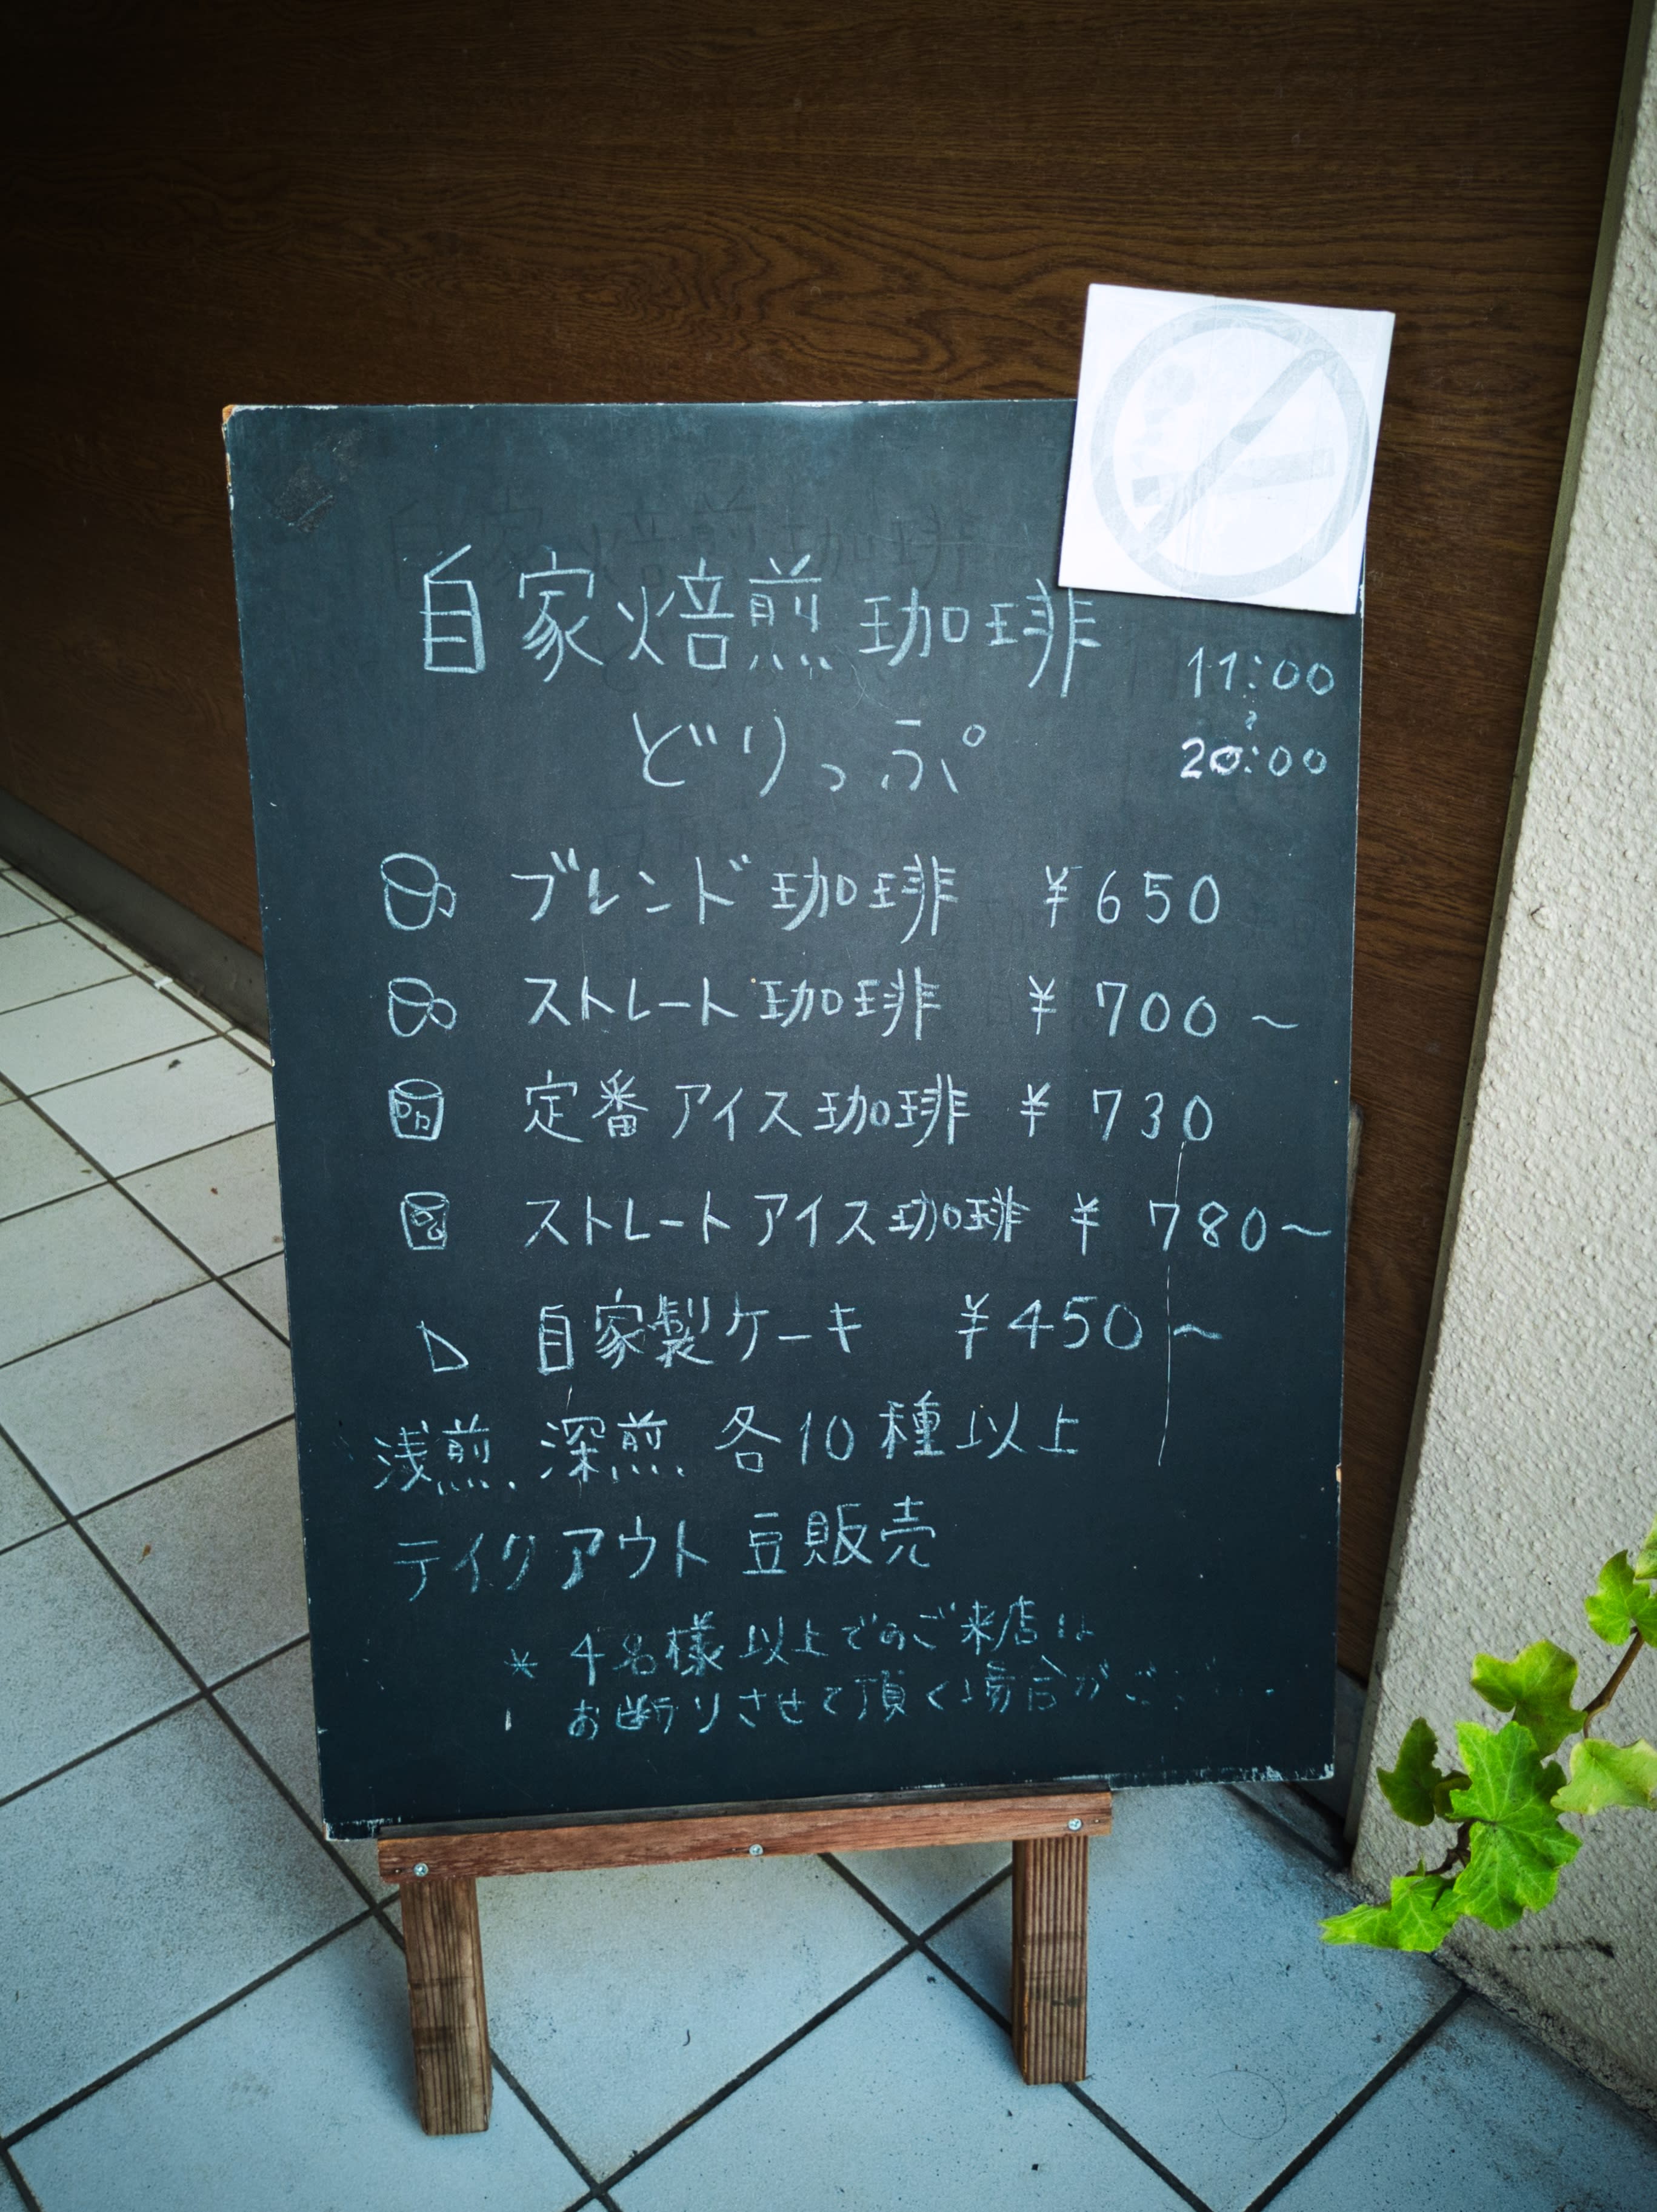 自家焙煎珈琲
どりっぷ
11:00
~
20:00
ブレンド珈琲 ¥650
ストレート珈琲 ¥700~
定番アイス珈琲 ¥730
ストレートアイス珈琲 ¥780~
自家製ケーキ ¥450~
浅煎.深煎.各10種以上
テイクアウト 豆販売
* 4名様以上でのご来店は
お断りさせて頂く場合がご